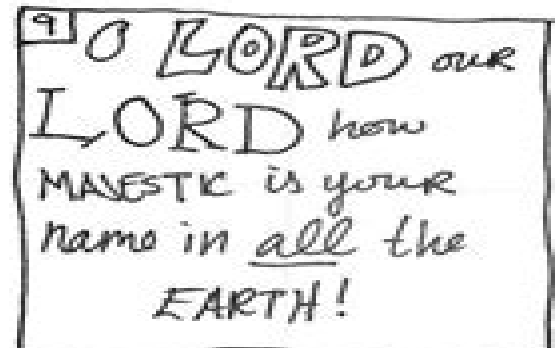 9 O LORD our
LORD how
MAJESTIC is your
name in all the
EARTH!